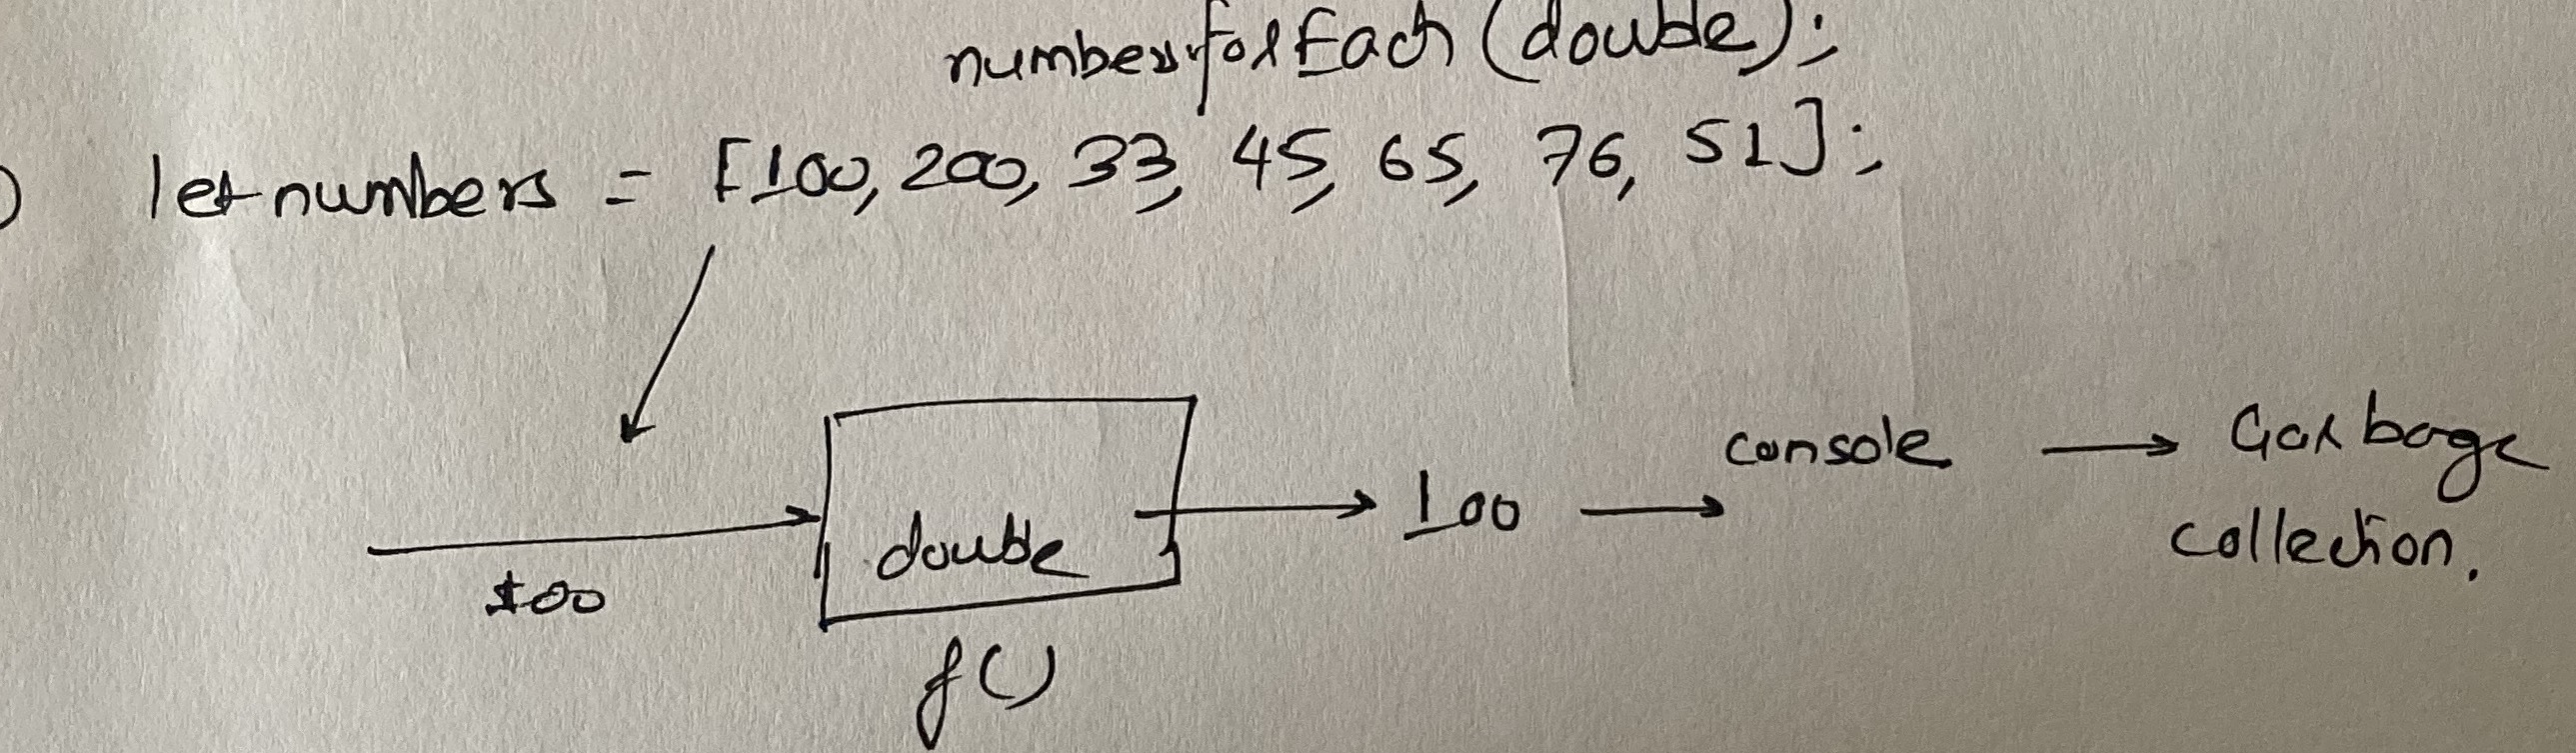 numbers.forEach(double);
) let numbers = [100, 200, 33, 45, 65, 76, 51];
100
double
f()
100
console
Garbage
collection.